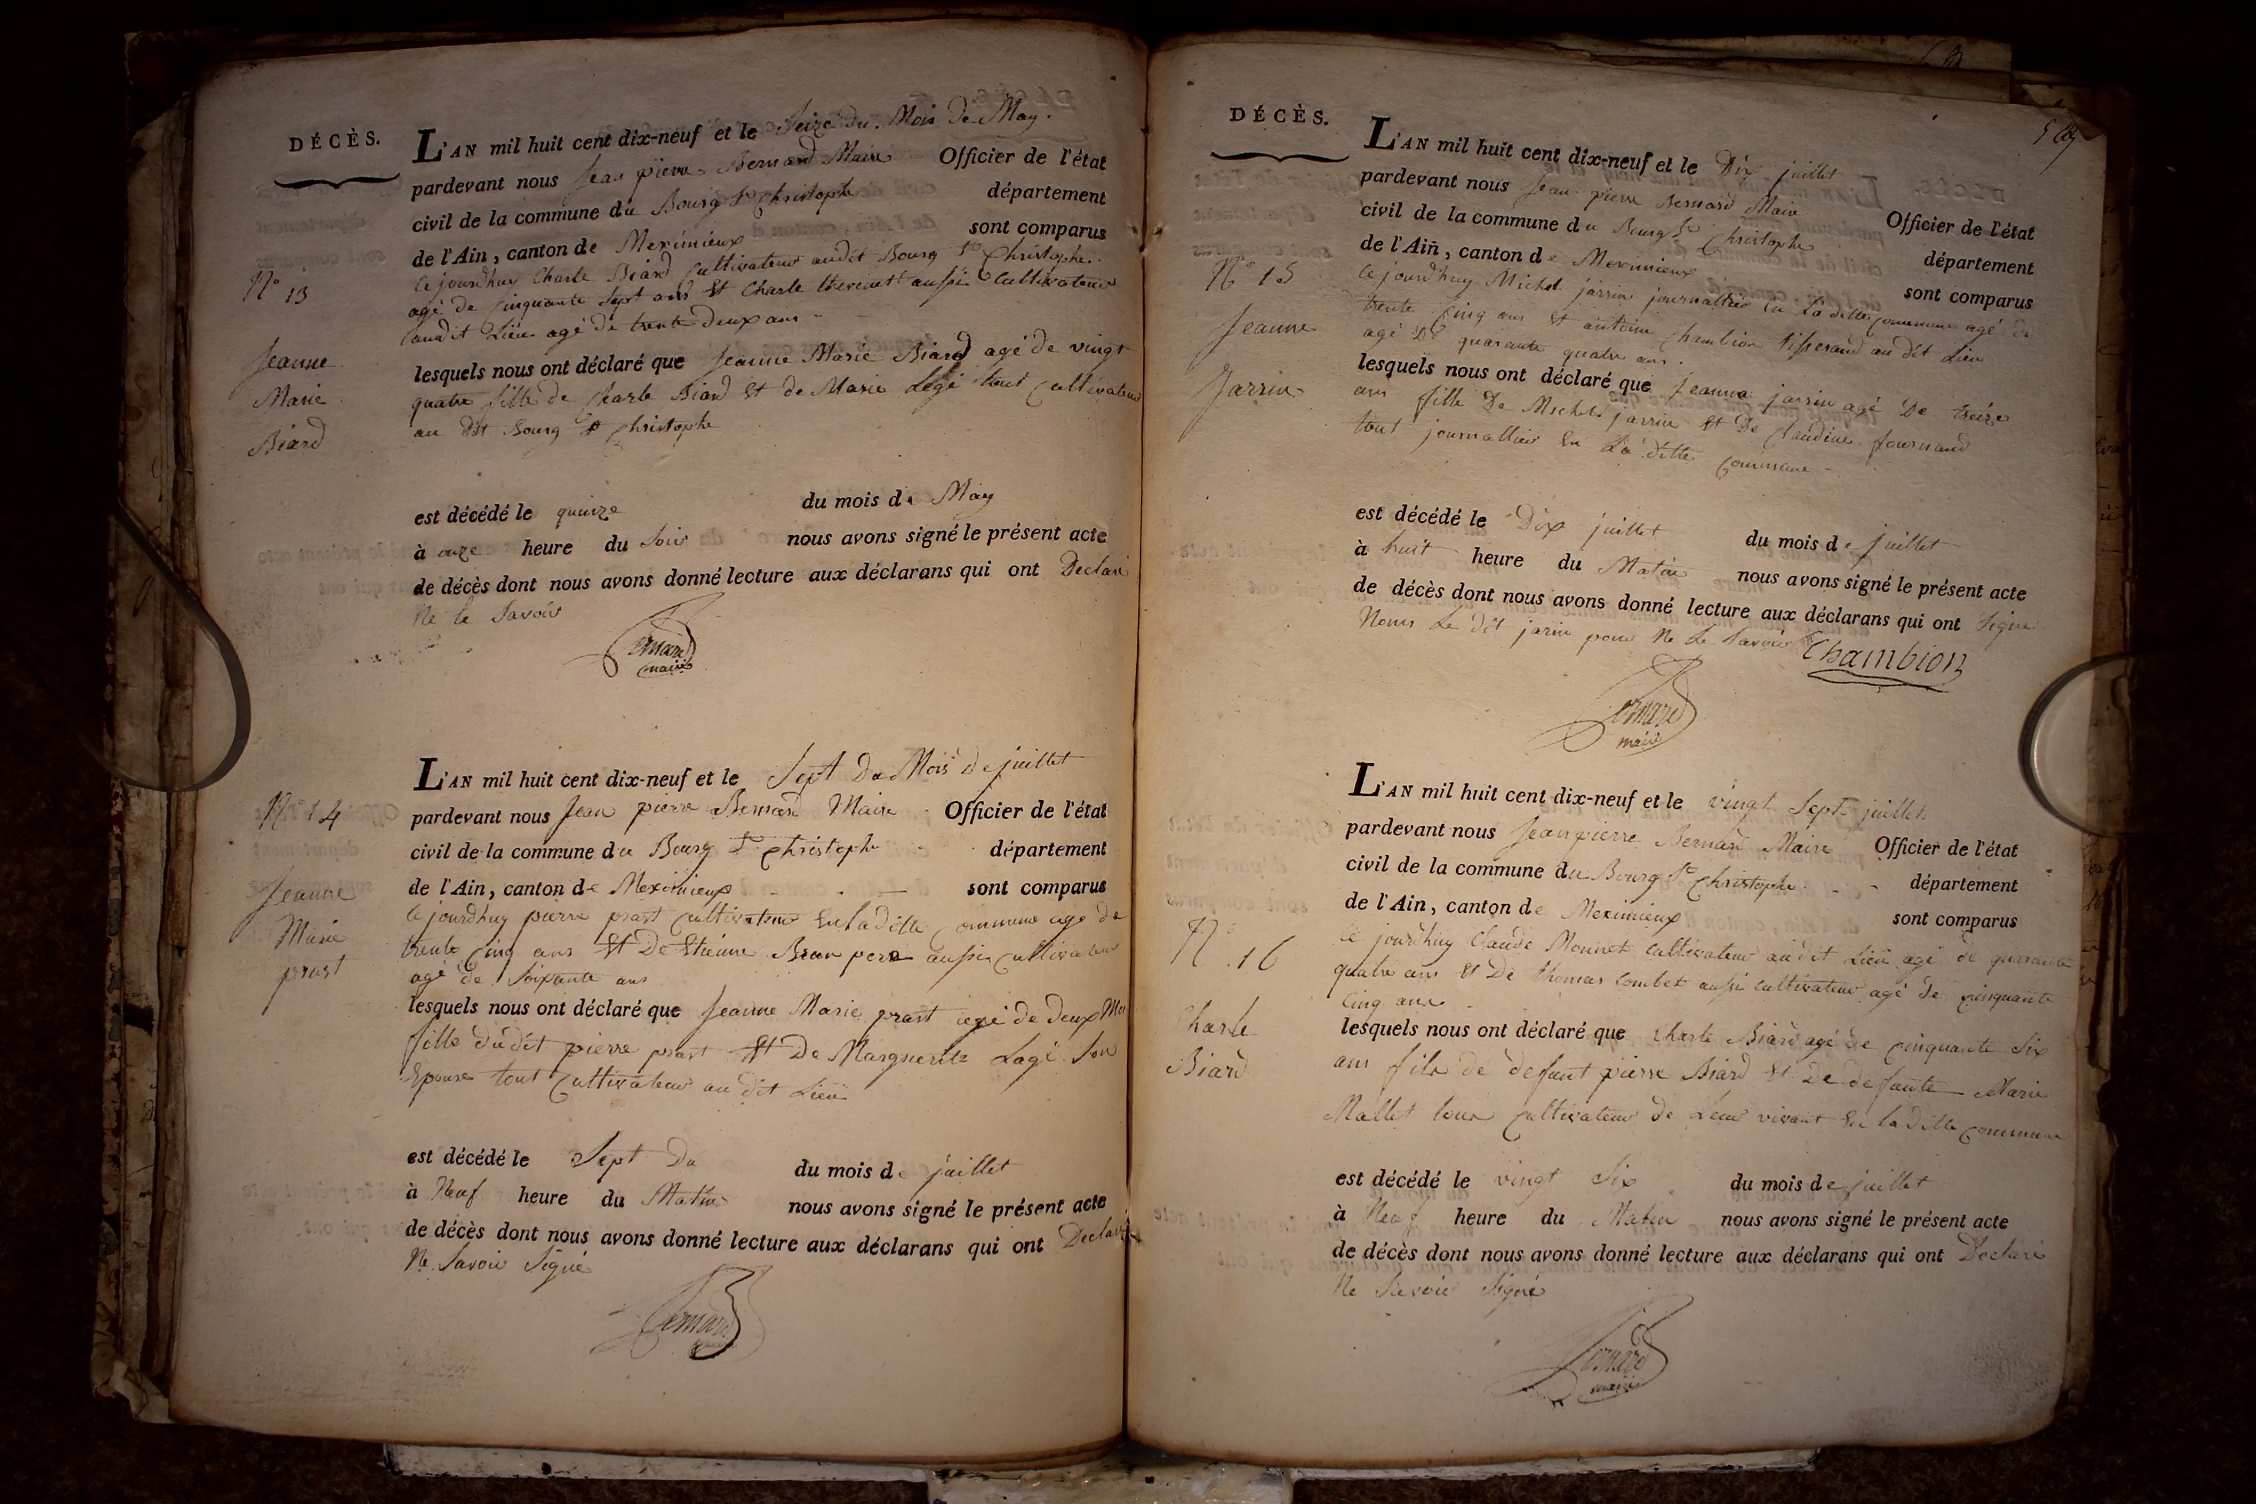 DÉCÈS.
L'AN mil huit cent dix-neuf et le Seize du Mois De May.
pardevant nous Jean pierre Bernard Maire Officier de l'état
civil de la commune du Bourg St Christophe département
de l'Ain, canton de Meximieux sont comparus
ce jourdhuy Charle Biard Cultivateur audit Bourg St Christophe
agé de Cinquante Sept ans Et Charle aussi Cultivateur
audit Lieu agé de trente Deux ans -
N° 13
Jeanne
Marie
Biard
lesquels nous ont déclaré que Jeanne Marie Biard agé de vingt
quatre fille de Charle Biard Et de Marie Lagé tout Cultivateur
au dit Bourg St Christophe
est décédé le quinze du mois de May
à onze heure du Soir nous avons signé le présent acte
de décès dont nous avons donné lecture aux déclarans qui ont Declaré
Ne le Savoir
Bernard
maire
L'AN mil huit cent dix-neuf et le Sept Du Mois De juillet
pardevant nous Jean pierre Bernard Maire Officier de l'état
civil de la commune du Bourg St Christophe département
de l'Ain, canton de Meximieux sont comparus
N° 14
Jeanne
Marie
prast
ce jourdhuy pierre prast Cultivateur En la ditte Commune agé de
trente Cinq ans Et De Etienne Brun pere aussi Cultivateur
agé de Soixante ans
lesquels nous ont déclaré que Jeanne Marie prast agé de deux Moi
fille dudit pierre prast Et De Marguerite Lagé Son
Epouse tout Cultivateur au dit Lieu
est décédé le Sept Du du mois de juillet
à Neuf heure du Matin nous avons signé le présent acte
de décès dont nous avons donné lecture aux déclarans qui ont Declaré
Ne Savoir Signé
Bernard
DÉCÈS.
L'AN mil huit cent dix-neuf et le Dix juillet
pardevant nous Jean pierre Bernard Maire Officier de l'état
civil de la commune du Bourg St Christophe département
de l'Ain, canton de Meximieux sont comparus
N° 15
Jeanne
Jarrin
ce jourdhuy Michel jarrin journallier En La ditte Commune agé de
trente Cinq ans Et antoine Chambion tisserand au dit Lieu
agé De quarante quatre ans.
lesquels nous ont déclaré que Jeanne jarrin agé De treize
ans fille De Michel jarrin Et De Claudine fournand
tout journallier En La ditte Commune -
est décédé le Dix juillet du mois de juillet
à huit heure du Matin nous avons signé le présent acte
de décès dont nous avons donné lecture aux déclarans qui ont Signé
Nous Le dit jarin pour Ne Le Savoir Chambion
Bernard
maire
L'AN mil huit cent dix-neuf et le vingt Sept juillet
pardevant nous Jean pierre Bernard Maire Officier de l'état
civil de la commune du Bourg St Christophe département
de l'Ain, canton de Meximieux sont comparus
N° 16
Charle
Biard
ce jourdhuy Claude Monnet Cultivateur au dit Lieu agé de quarante
quatre ans Et De thomas Combet aussi Cultivateur agé de Cinquante
Cinq ans -
lesquels nous ont déclaré que Charle Biard agé De Cinquante Six
ans fils de defunt pierre Biard Et De defunte Marie
Mallet tous Cultivateur de Leur vivant En la ditte Commune
est décédé le vingt Six du mois de juillet
à Neuf heure du Matin nous avons signé le présent acte
de décès dont nous avons donné lecture aux déclarans qui ont Declaré
Ne Savoir Signé
Bernard
maire